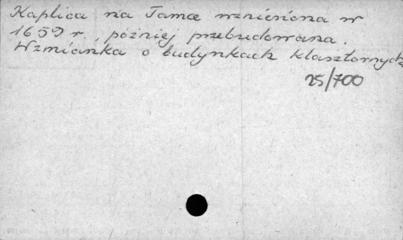 Kaplica na Tamce wzniesiona w
1659 r., później przebudowana.
Wzmianka o budynkach klasztornych
25/700